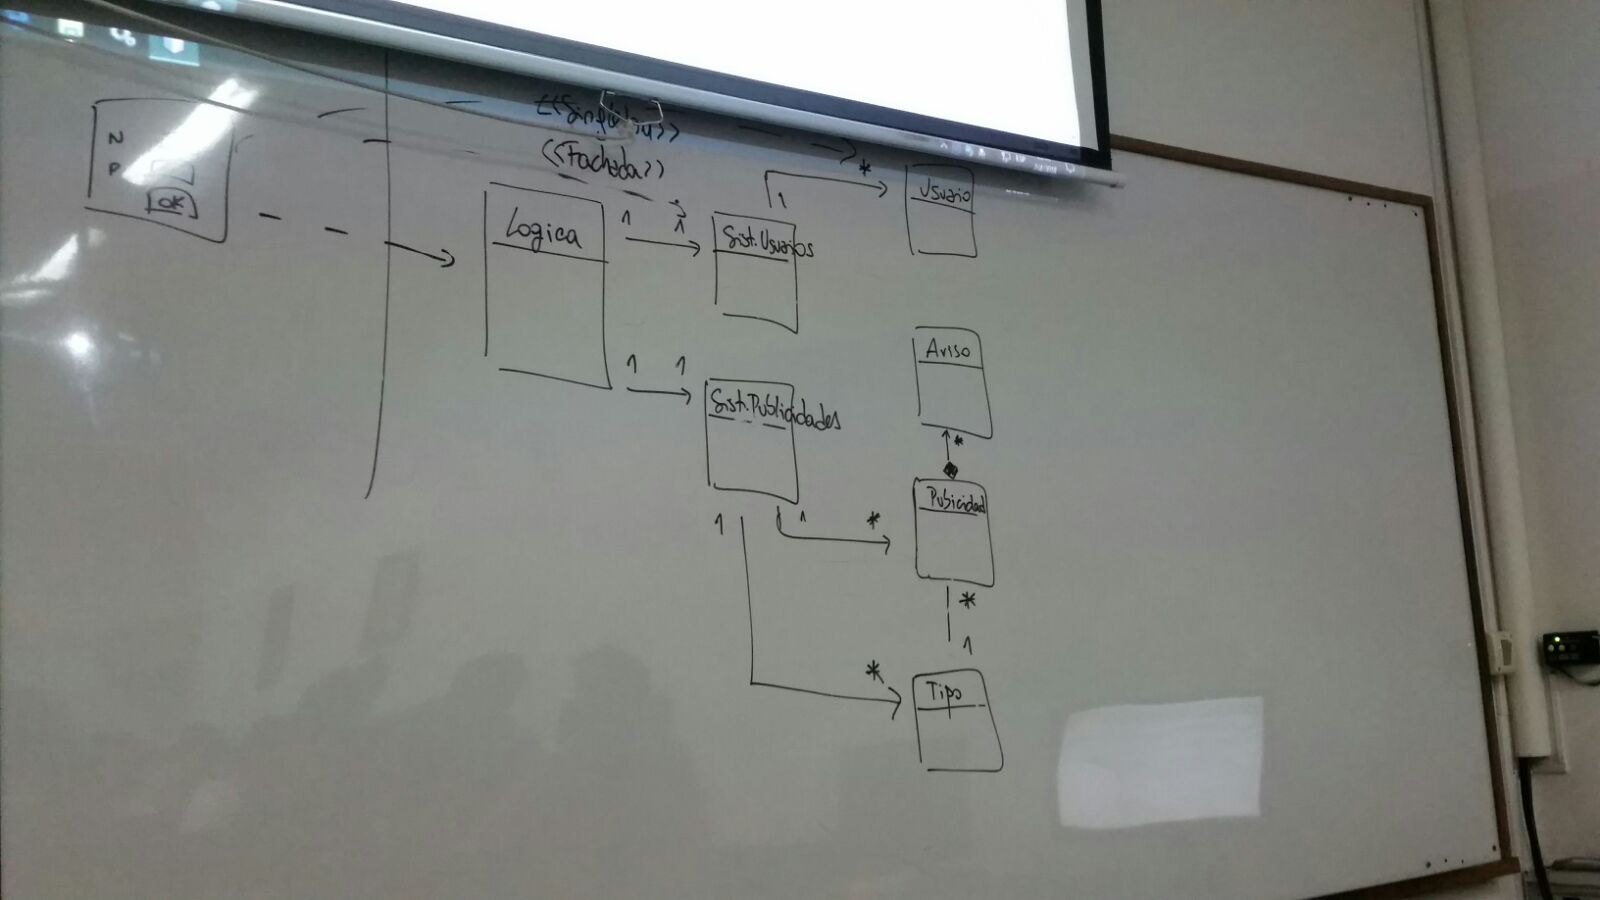 <<Singleton>>
<<Fachada>>
N
P
OK
Logica
1
1
Sist.Usuarios
1
*
Usuario
1
1
Sist.Publicidades
Aviso
*
Publicidad
1
1
*
*
1
*
Tipo